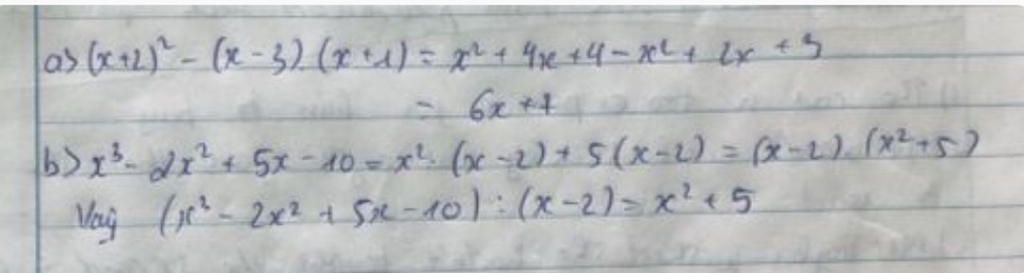 a) (x+2)² - (x-3).(x+1) = x² + 4x + 4 - x² + 2x + 3
= 6x + 7
b) x³ - 2x² + 5x - 10 = x². (x-2) + 5(x-2) = (x-2).(x²+5)
Vậy (x³ - 2x² + 5x - 10) : (x-2) = x² + 5